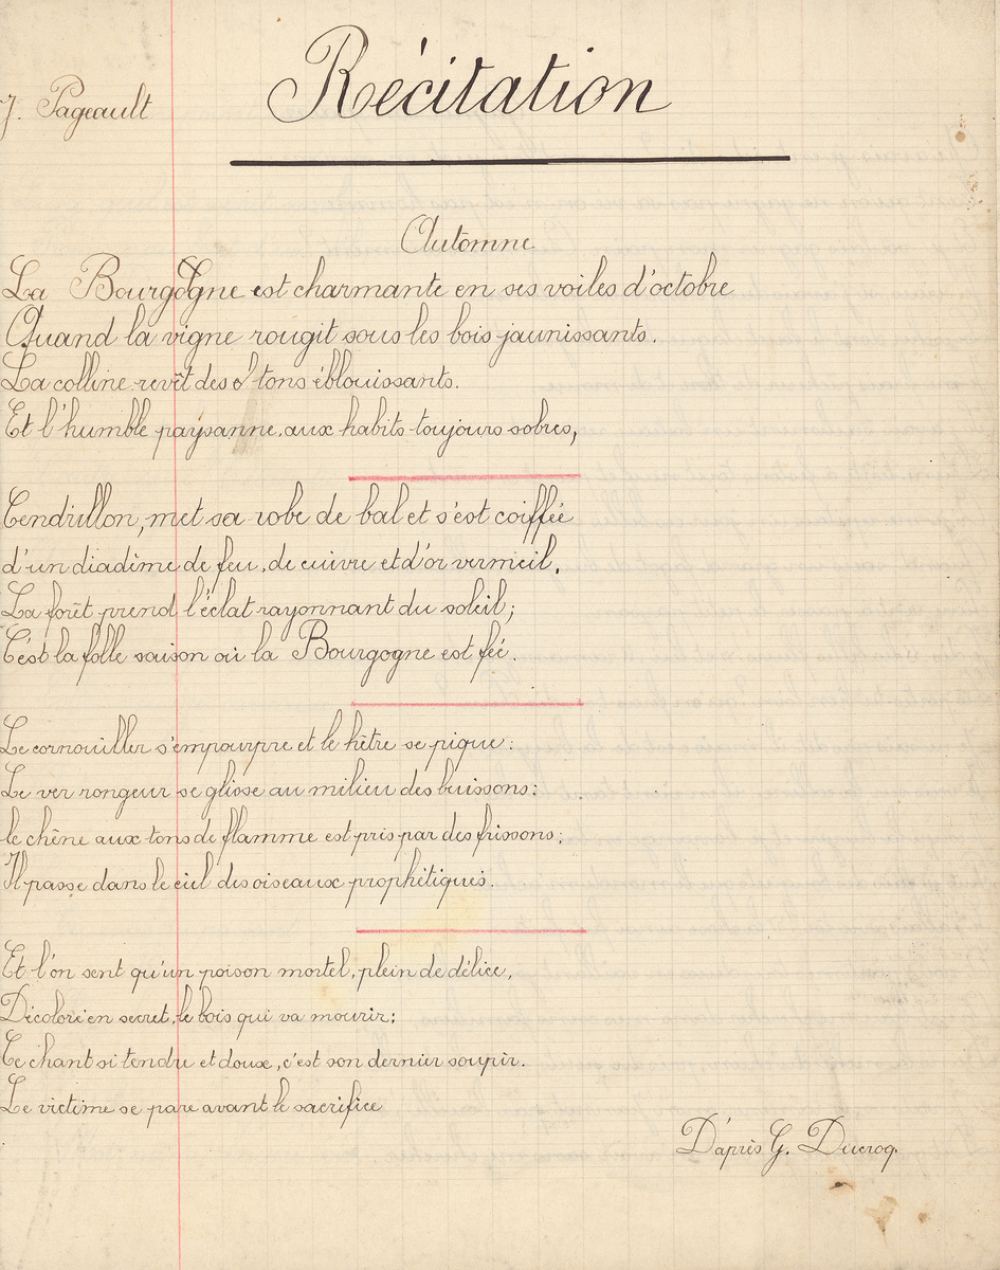 Récitation
J. Pageault
Automne
La Bourgogne est charmante en ses voiles d'octobre
Quand la vigne rougit sous les bois jaunissants.
La colline revêt des tons éblouissants.
Et l'humble paysanne, aux habits toujours sobres,
Cendrillon, met sa robe de bal et s'est coiffée
d'un diadème de feu, de cuivre et d'or vermeil.
La forêt prend l'éclat rayonnant du soleil;
C'est la folle saison où la Bourgogne est fée.
Le cornouiller s'empourpre et le hêtre se pique:
Le ver rongeur se glisse au milieu des buissons:
le chêne aux tons de flamme est pris par des frissons;
Il passe dans le ciel des oiseaux prophétiques.
Et l'on sent qu'un poison mortel, plein de délice,
Décolore en secret, le bois qui va mourir;
Ce chant si tendre et doux, c'est son dernier soupir.
La victime se pare avant le sacrifice
D'après G. Ducrocq